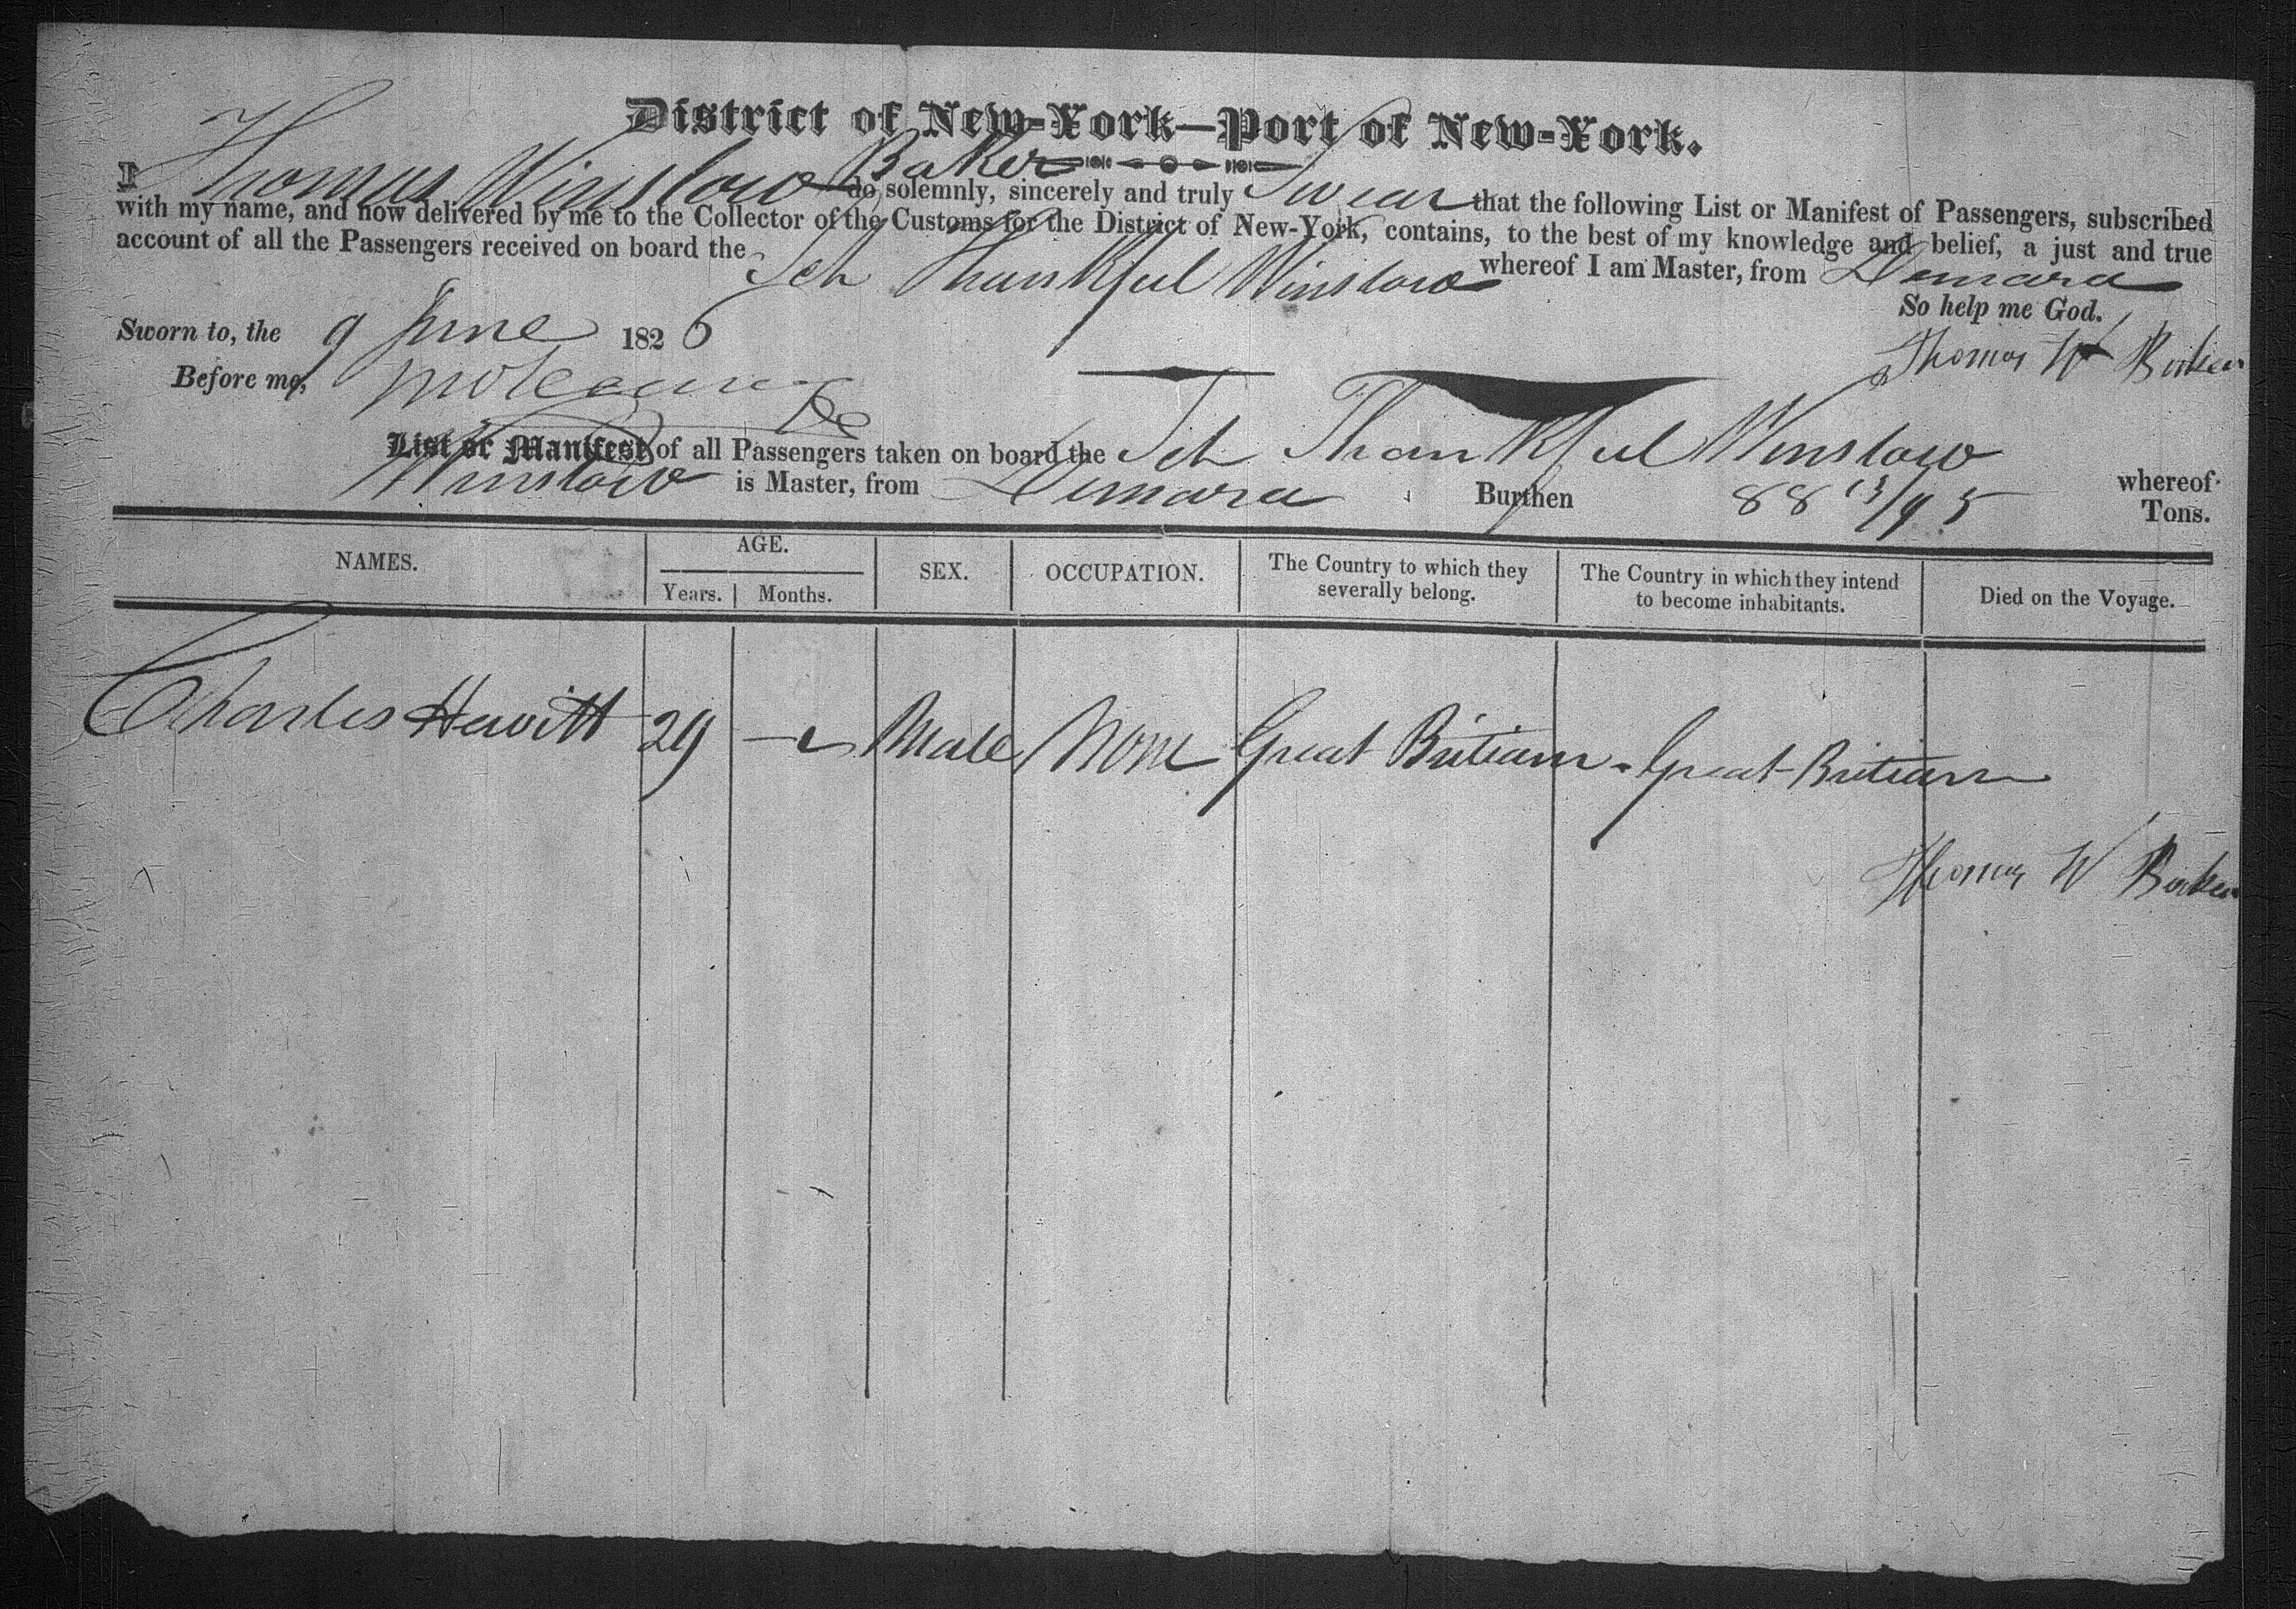 District of New-York—Port of New-York.
I Thomas Winslow Baker do solemnly, sincerely and truly Swear that the following List or Manifest of Passengers, subscribed
with my name, and now delivered by me to the Collector of the Customs for the District of New-York, contains, to the best of my knowledge and belief, a just and true
account of all the Passengers received on board the Sch Thankful Winslow whereof I am Master, from Demara
So help me God.
Sworn to, the 9 June 1826
Thomas W Baker
Before me,
List or Manifest of all Passengers taken on board the Sch Thankful Winslow whereof
Winslow is Master, from Demara Burthen 88 13/95 Tons.
NAMES. AGE. SEX. OCCUPATION. The Country to which they severally belong. The Country in which they intend to become inhabitants. Died on the Voyage.
Years. Months.
Charles Hewitt 29 — Male None Great Britiann - Great Britiann
Thomas W Baker